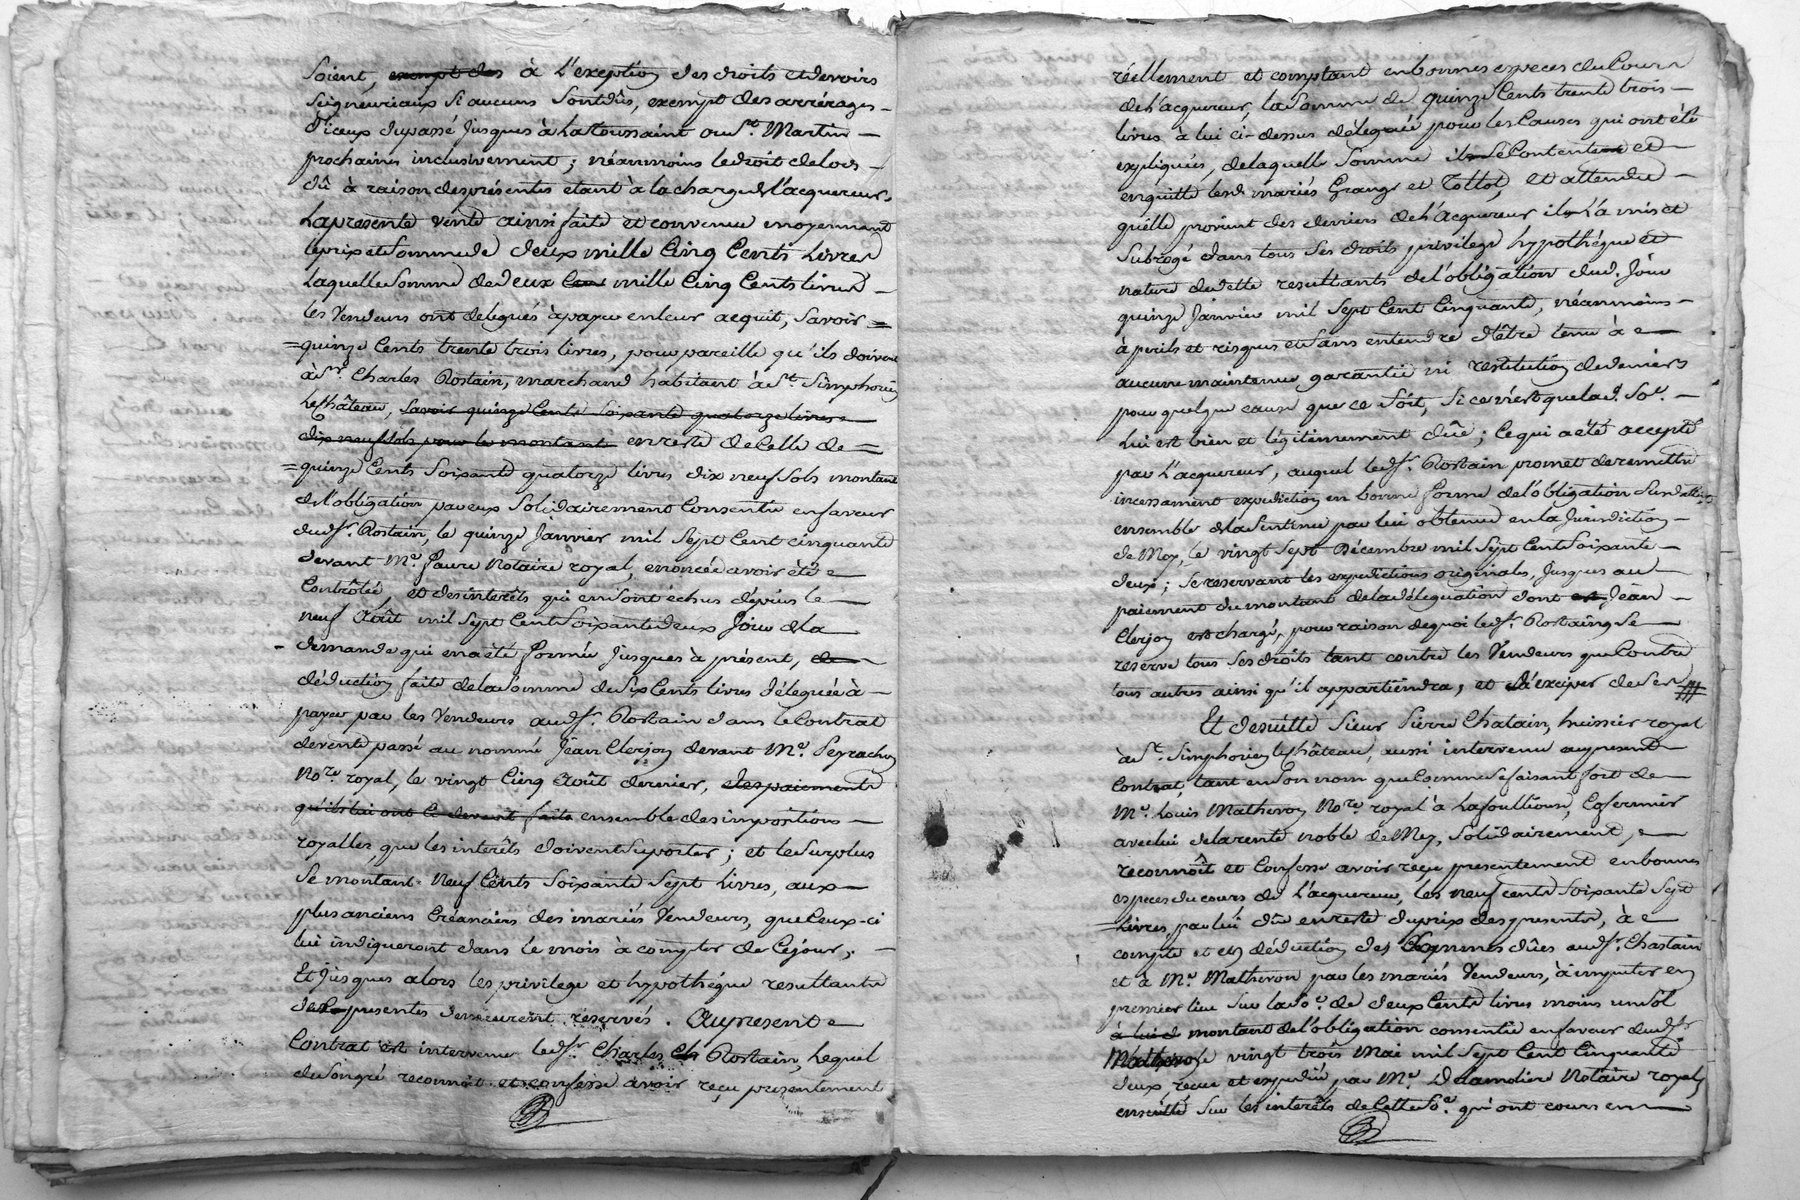 soient, exempt des à l'exeption des droits et devoirs
seigneuriaux si aucuns sont dûs, exempt des arrérages
d'iceux du passé jusques à la toussaint ou St. Martin
prochaines inclusivement; néanmoins le droit de lods
dû à raison des présentes etant à la charge de l'acquereur,
La presente vente ainsi faite et convenue moyennant
le prix et Somme de deux mille Cinq Cents Livres
Laquelle Somme de deux Cent mille Cinq Cents livres
les Vendeurs ont delegués à payer en leur acquit, Savoir =
= quinze Cents trente trois livres, pour pareille qu'ils doivent
à Sr. Charles Rostain, marchand habitant à St. Simphorien
le Château, savoir quinze Cents soixante quatorze livres
dix neuf sols pour le montant en reste de Celle de =
= quinze Cents soixante quatorze livres dix neuf sols montant
de l'obligation par eux Solidairement Consentie en faveur
dud. Sr. Rostain, le quinze Janvier mil Sept Cent cinquante
devant Me. faure Notaire royal, enoncée avoir été
Contrôlée, et des interêts qui en sont échus depuis le
neuf Août mil sept Cent Soixante deux Jour de la
demande qui en a été formée Jusques à présent, de
déduction faite de la Somme de Six Cents livres déleguée à
payer par les Vendeurs aud. Sr. Rostain dans le Contrat
de vente passé au nommé Jean Clerjon devant Me. Peyrachon
No.re royal, le vingt Cinq Août dernier, des paiements
qu'ils lui ont ci devant faits ensemble des impositions
royalles, que les interêts doivent suporter; et le Surplus
Se montant Neuf Cents Soixante Sept Livres, aux
plus anciens Créanciers des mariés Vendeurs, que Ceux-ci
lui indiqueront dans le mois à compter de Cejour,
Et Jusques alors les privilege et hypothéque resultants
des presentes demeurent réservés. Au present
Contrat est intervenu led. Sr. Charles Ch Rostain, Lequel
de son gré reconnoit et confesse avoir reçu presentement
réellement et comptant en bonnes especes du Cours
de l'acquereur, la Somme de quinze Cents trente trois
livres à lui ci-dessus deleguée pour les Causes qui ont été
expliquées, de laquelle Somme il se Contentent et
en quitte lesd. mariés Grange et Tollot, et attendu
qu'elle provient des deniers de l'Acquereur il l'a mis et
Subrogé dans tous ses droits privilege hypothéque et
nature de dette resultants de l'obligation dud. Jour
quinze Janvier mil Sept Cent Cinquante, néanmoins
à perils et risques et sans entendre d'être tenu à
aucune maintenue garantie ni restitution de deniers
pour quelque cause que ce Soit, Si ce n'est que lad. So.e
Lui est bien et légitimement dûe; Ce qui a été accepté
par L'acquereur, auquel led. Sr. Rostain promet de remettre
incessament expedition en bonne forme de l'obligation Susd.
ensemble de la Sentence par lui obtenue en la Jurisdiction
de Mey, le vingt sept Décembre mil Sept Cent Soixante
deux; se reservant les expeditions originales, Jusques au
paiement du montant de la délegation dont est Jean
Clerjon est chargé, pour raison de quoi led. Sr. Rostaing se
reserve tous ses droits tant contre les Vendeurs que Contre
tous autres ainsi qu'il appartiendra, et d'éxciper de ser
Et desuitte Sieur Pierre Chatain, huissier royal
à St. Simphorien le Château, aussi intervenu au present
Contrat, tant en Son nom que Comme se faisant fort de
Me. Louis Matheron No.re royal à Lafoullouse, Cofermier
avec lui de la rente noble de Mey, Solidairement,
reconnoît et Confesse avoir reçu presentement en bonnes
especes du cours de L'acquereur, les neuf cents soixante Sept
Livres, par lui dûe en reste du prix des presentes, à
compte et en déduction des Sommes dûes aud. Sr. Chastain
et à Me. Matheron par les mariés Vendeurs, à imputer en
premier lieu Sur la So.e de deux Cents livres moins un sol
à lui d montant de l'obligation consentie en faveur dud. Sr.
Matheron le vingt trois Mai mil Sept Cent Cinquante
deux reçue et expediée par Me. Delamoliere Notaire royal,
ensuitte Sur les interêts de Cette So.e qui ont cours en